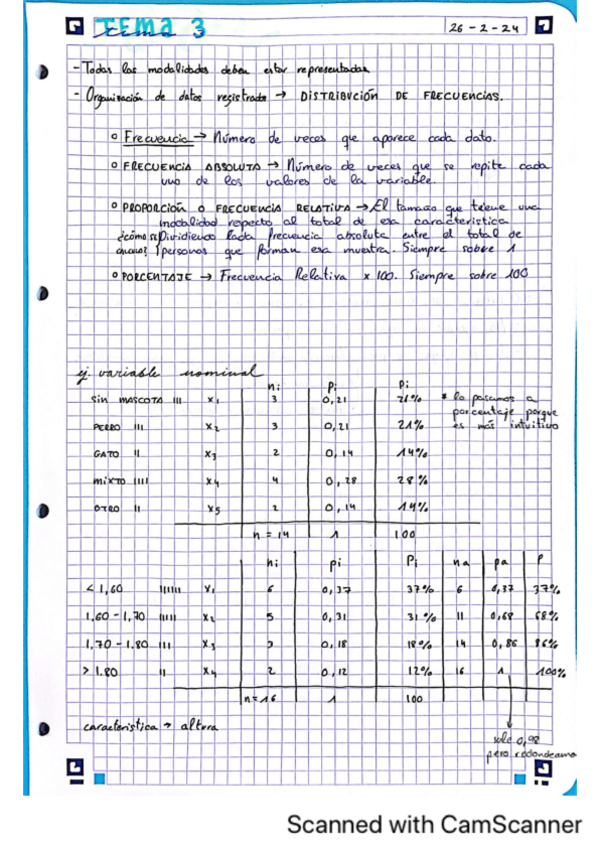 TEMA 3
26-2-24
- Todas las modalidades deben estar representadas
- Organización de datos registrados → DISTRIBUCIÓN DE FRECUENCIAS.
° Frecuencia → Número de veces que aparece cada dato.
° FRECUENCIA ABSOLUTA → Número de veces que se repite cada
uno de los valores de la variable.
° PROPORCIÓN O FRECUENCIA RELATIVA → El tamaño que tiene una
modalidad respecto al total de esa característica
¿cómo se Dividiendo cada frecuencia absoluta entre el total de
personas que forman esa muestra. Siempre sobre 1
° PORCENTAJE → Frecuencia Relativa x 100. Siempre sobre 100
ej. variable nominal
ni pi Pi
Sin MASCOTA III x1 3 0,21 21% * lo pasamos a
porcentaje porque
PERRO III x2 3 0,21 21% es más intuitivo
GATO II x3 2 0,14 14%
MIXTO IIII x4 4 0,28 28%
OTRO II x5 2 0,14 14%
n = 14 1 100
ni pi Pi na pa P
< 1,60 IIIIII x1 6 0,37 37% 6 0,37 37%
1,60 - 1,70 IIIII x2 5 0,31 31% 11 0,68 68%
1,70 - 1.80 III x3 3 0,18 18% 14 0,86 86%
> 1.80 II x4 2 0,12 12% 16 1 100%
n = 16 1 100
característica → altura
sale 0,98
pero redondeamo
Scanned with CamScanner